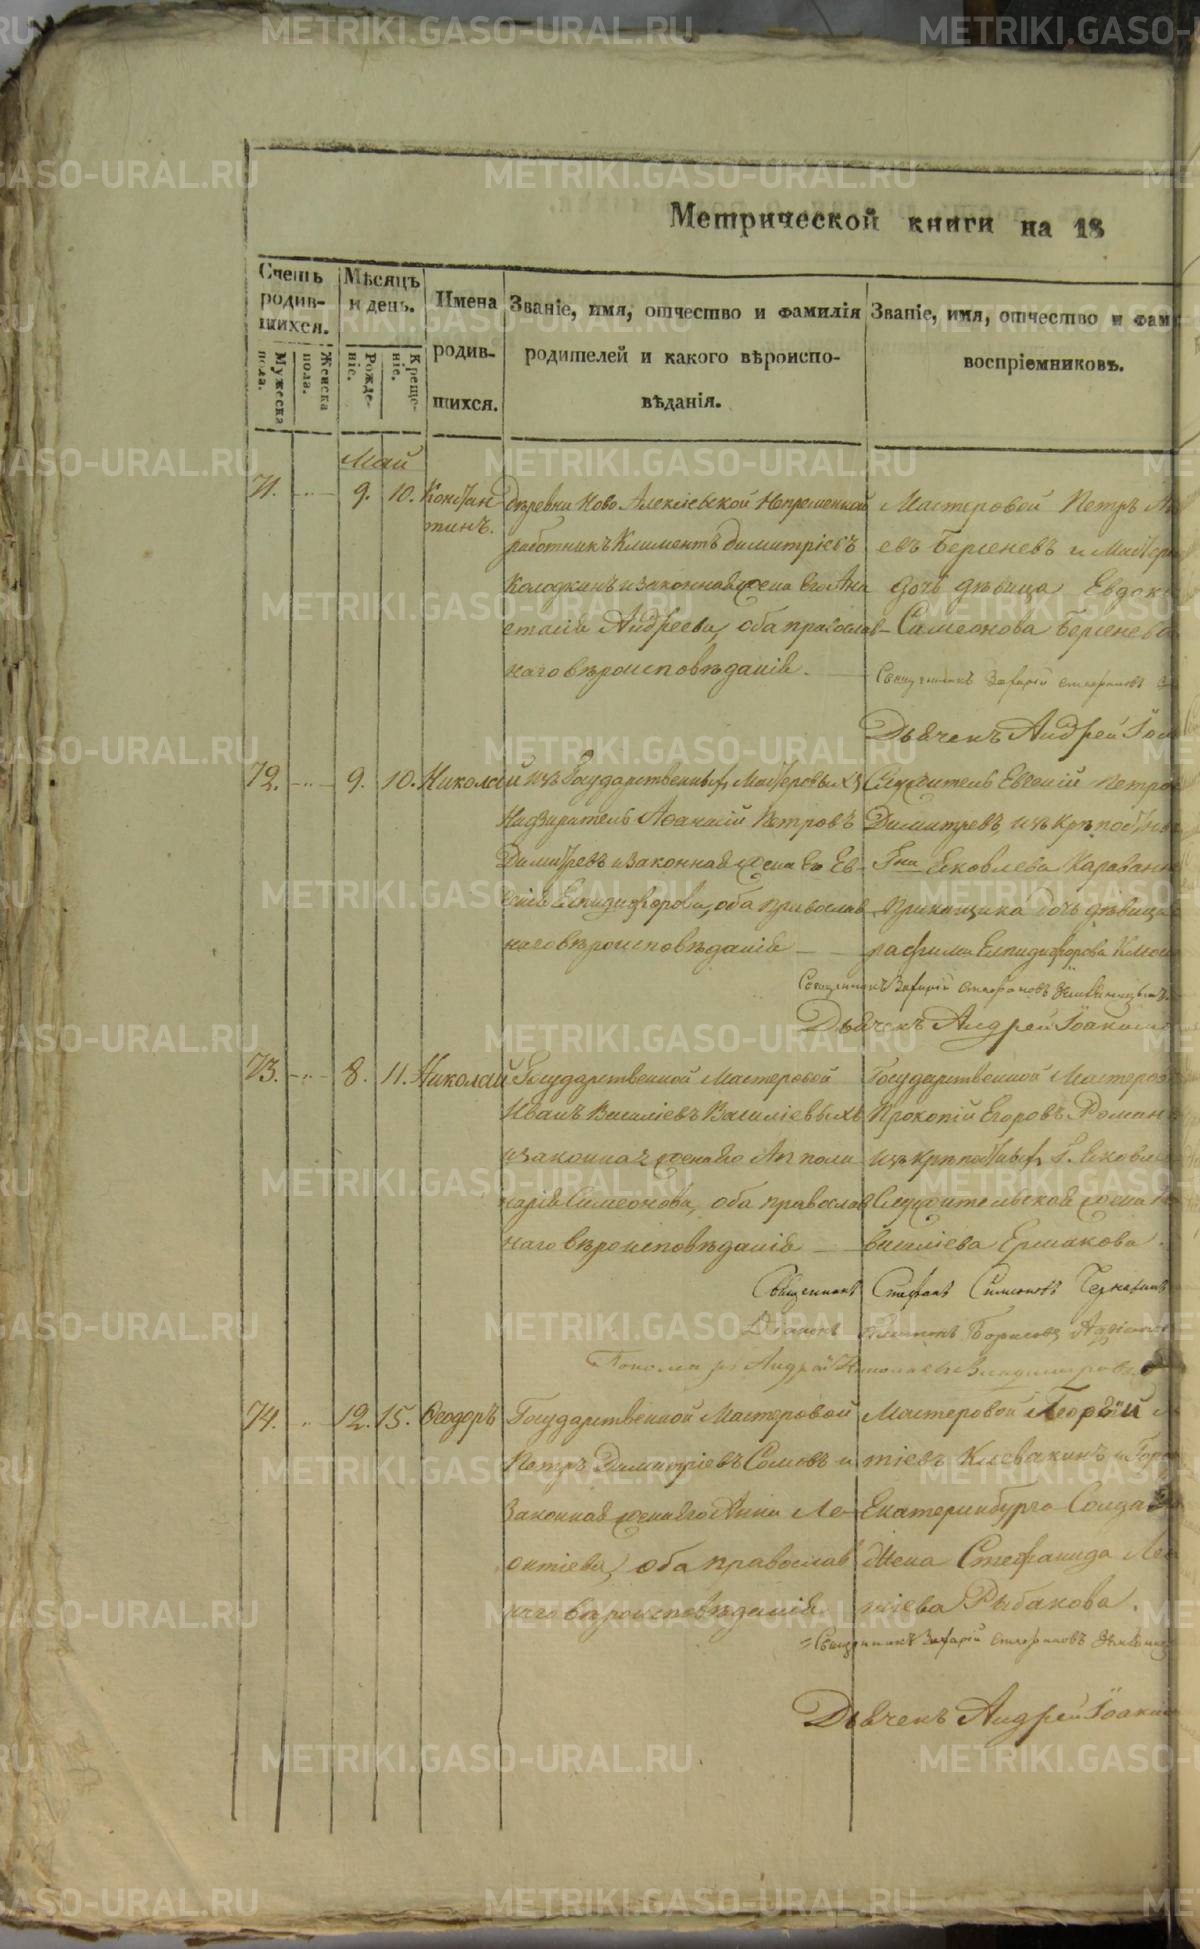 Метрической книги на 18
Счетъ родив-шихся.
Мужеска пола.
Женска пола.
Мѣсяцъ и день.
Рожде-ніе.
Креще-ніе.
Имена родив-шихся.
Званіе, имя, отчество и фамилія родителей и какого вѣроиспо-вѣданія.
Званіе, имя, отчество и фам
воспріемниковъ.
Май
71. 9. 10. Констан-
тинъ.
Деревни Ново Алексѣевской Непременный
работникъ Климентъ Димитріевъ
Колодкинъ и законная жена его Ана
стасія Андреева, оба православ-
наго вѣроисповѣданія.
Мастеровой Петръ
евъ Берсеневъ и Мастеро
дочь дѣвица Евдок
Симеонова Берсенева
Священникъ Захарій Стефановъ
Дьячекъ Андрей
72. 9. 10. Николай
изъ Государственныхъ Мастеровыхъ
Надзиратель Афанасій Петровъ
Димитревъ и законная жена его Ев-
Елпидифорова, оба православ
наго вѣроисповѣданія
Служитель Евгеній Петро
Димитревъ, изъ Крѣпостны
Гна Яковлева
Прикащика дочь дѣвица
рафима Елпидифорова
Священникъ Захарій Стефановъ
Дьячекъ Андрей Іоаким
73. 8. 11. Николай
Государственной Мастеровой
Иванъ Василіевъ Василіевыхъ
и законная жена его Аполи
нарія Симеонова, оба православ
наго вѣроисповѣданія
Государственной Мастеров
Прокопій Егоровъ Роман
изъ Крѣпостныхъ Г. Яковле
Служительская жена
Василіева Ермакова.
Священникъ Стефанъ Симеоновъ
Діаконъ
Пономарь Андрей
74. 12. 15. Феодоръ
Государственной Мастеровой
Петръ Димитріевъ Сомовъ и
законная жена его Анна Ле-
онтіева, оба православ
наго вѣроисповѣданія
Мастеровой Георгій
тіевъ Клевакинъ и Горо
Екатеринбурга Солда
жена Стефанида Лео
тіева Рыбакова.
Священникъ Захарій Стефановъ
Дьячекъ Андрей Іоаким
METRIKI.GASO-URAL.RU